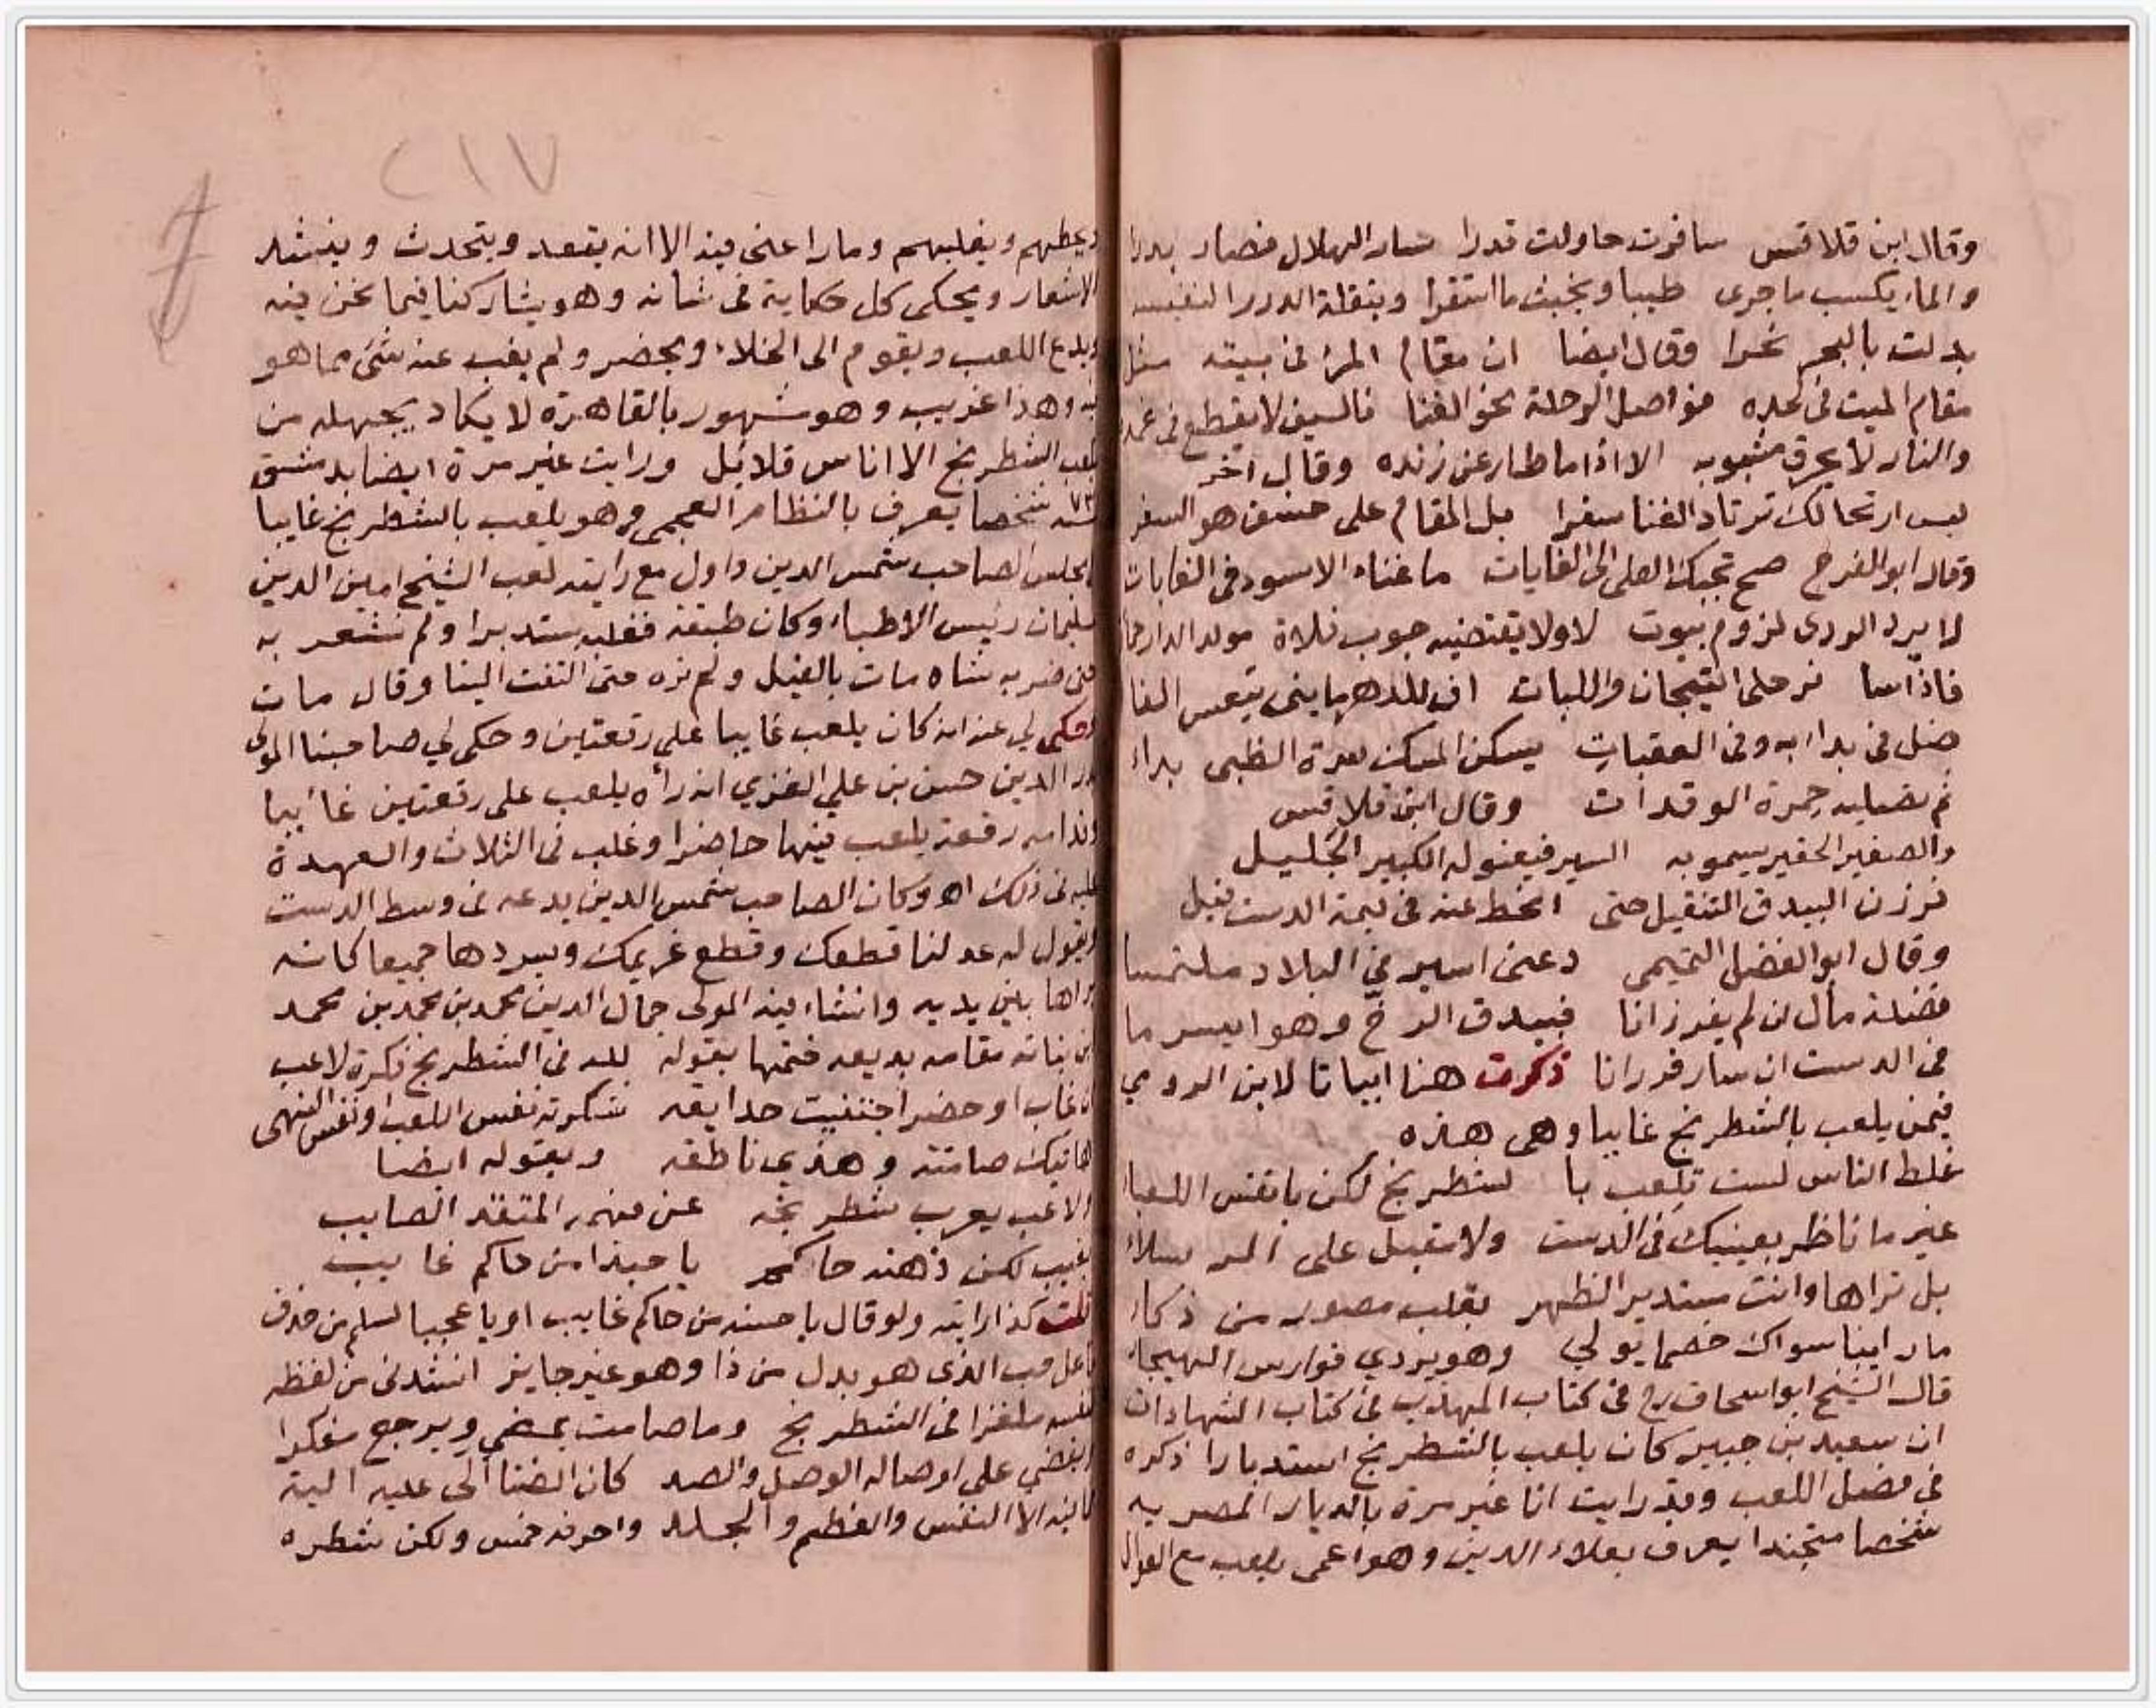 وقال ابن قلاقس سافرت حاولت قدرا سار الهلال فصار بدرا
والماء يكسب ما جرى طيبا ويخبث ما استقرا وبنقلة الدرر النفيسه
بدلت بالبحر نحرا وقال ايضا ان مقام المرء فى بيته مثل
مقام الميت فى لحده فواصل الرحلة نحو الغنا فالسيف لا يقطع فى غمده
والنار لا يحرق مشبوبه الا اذا ما طار عن زنده وقال آخر
ليس ارتحالك ترتاد الغنا سفرا بل المقام على خسف هو السفر
وقال ابو الفرج صح بخيل العلى الى الغايات ما غناء الاسود فى الغابات
لا يرد الردى لزوم بيوت لا ولا يقتضيه جوب فلاة مولد الدر
فاذا سا فر حلى التيجان واللبات
ضل فى به وفى العقبات يسكن المسك سرة الظبى
ثم تصليه جمرة الوقدات وقال ابن قلاقس
والصغير الحقير يسمو به السير فيعنو له الكبير الجليل
فرزن البيدق التنقيل حتى انحط عنه فى قيمة الدست فيل
وقال ابو الفضل التميمى دعنى اسير فى البلاد ملتمسا
فضلة مال ان لم يفد زانا فبيدق الرخ وهو ايسر ما
فى الدست ان سار فرزانا ذكرت هنا ابياتا لابن الرومي
فيمن يلعب بالشطرنج غايبا وهى هذه
غلط الناس لست تلعب با لشطرنج لكن بانفس اللعبا
غير ما ناظر بعينيك فى الدست ولا مقبل على
بل تراها وانت مستدبر الظهر بقلب مصور من ذكاء
ما راينا سواك خصما يولي وهو يردي فوارس الهيجاء
قال الشيخ ابو اسحاق رح فى كتاب المهذب فى كتاب الشهادات
ان سعيد بن جبير كان يلعب بالشطرنج استدبارا ذكره
في فصل اللعب وقد رايت انا غير مرة بالديار المصريه
شخصا متجندا يعرف بعلاء الدين وهو اعمى يلعب مع العوال
ويغلبهم وما راعنى فيه الا انه يقعد ويتحدث وينشد
الاشعار ويحكى كل حكاية فى شانه وهو يشاركنا فيما نحن فيه
ويدع اللعب ويقوم الى الخلاء ويحضر ولم يغب عنه شئ مما هو
فيه وهذا غريب وهو مشهور بالقاهرة لا يكاد يجهله من
يلعب الشطرنج الا اناس قلائل ورايت غير مرة ايضا بدمشق
شخصا يعرف بالنظام العجمى وهو يلعب بالشطرنج غايبا
بمجلس الصاحب شمس الدين واول مع رايته لعب الشيخ امين الدين
سليمان رئيس الاطباء وكان طبقة فغلبه مستدبرا ولم نشعر به
حتى ضربه شاه مات بالفيل ولم نره حتى التفت الينا وقال مات
وحكى لي عنه انه كان يلعب غايبا على رقعتين وحكى لي صاحبنا المولى
بدر الدين حسن بن علي الغزي انه رآه يلعب على رقعتين غائبا
وقدامه رقعة يلعب فيها حاضرا وغلب فى الثلاث والعهدة
عليه فى ذلك اه وكان الصاحب شمس الدين يدعه فى وسط الدست
ويقول له عد لنا قطعك وقطع غريمك ويسردها جميعا كانه
يراها بين يديه وانشاء فيه المولى جمال الدين محمد بن محمد بن محمد
بن نباته مقامه بديعه ختمها بقوله لله فى الشطرنج فكرة لاعب
ان غاب او حضر اجتنيت حدايقه شكرته نفس اللعب او نفس النهى
هاتيك صامتة وهذي ناطقه وبقوله ايضا
لاعب يعرب شطرنجه عن فهمه المتقد الصايب
يغيب لكن ذهنه حاكم يا حبذا من حاكم غايب
قلت كذا رايته ولو قال يا حسنه من حاكم غايب او يا عجبا لسلم من حذف
فاعل حب الذى هو بدل من ذا وهو غير جايز انشدنى من لفظه
لنفسه ملغزا فى الشطرنج وما صامت يمضي ويرجع مفكرا
ويقضي على اوصاله الوصل والصد كان الضنا آلى عليه الية
فما فيه الا النفس والعظم والجلد واحرفه خمس ولكن شطره